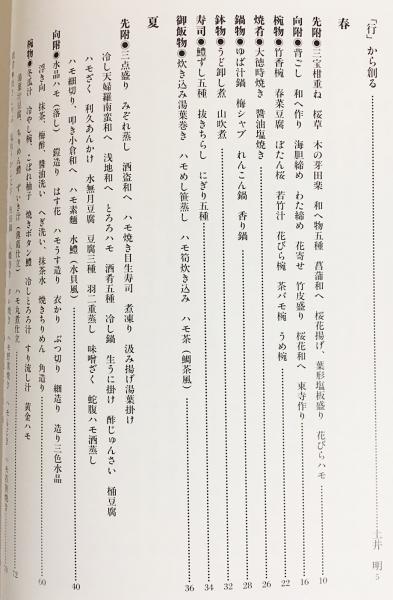 「行」から創る……土井 明 5
春
先附●三宝柑重ね 桜草 木の芽田楽 和へ物五種 菖蒲和へ 桜花揚げ、葉形塩板盛り 花びらハモ……10
向附●背ごし 和へ作り 海胆締め わた締め 花寄せ 竹皮盛り 桜花和へ 東寺作り……16
椀物●竹香椀 春菜豆腐 ぼたん桜 若竹汁 花びら椀 茶バモ椀 うめ椀……22
焼肴●大徳時焼き 醤油塩焼き……26
鍋物●ゆば汁鍋 梅シャブ れんこん鍋 香り鍋……28
鉢物●うど卸し煮 山吹煮……32
寿司●鱧ずし五種 抜きちらし にぎり五種……34
御飯物●炊き込み湯葉巻き ハモめし笹蒸し ハモ筍炊き込み ハモ茶(鯛茶風)……36
夏
先附●三点盛り みぞれ蒸し 酒盗和へ ハモ焼き目生寿司 煮凍り 汲み揚げ湯葉掛け
冷し天婦羅南蛮和へ 浅地和へ とろろハモ 酒肴五種 冷し鍋 生うに掛け 酢じゅんさい 桶豆腐
ハモざく 利久あんかけ 水無月豆腐 豆腐三種 羽二重蒸し 味噌ざく 蛇腹ハモ酒蒸し
ハモ細切り、叩き小倉和へ ハモ素麺 水鱧(水貝風)……40
向附●水晶ハモ(落し) 鎧造り はす花 ハモうす造り 衣かり ぶつ切り 細造り 造り三色水晶
浮き向 抹茶、梅酢、醤油洗い へぎ洗い、抹茶水 焼きちりめん 角造り……60
椀物●冬瓜汁 冷やし椀、こぼれ柚子 焼きボタン鱧 冷しとろろ汁 すり流し汁 黄金ハモ
ハモ丸煮仕立……72